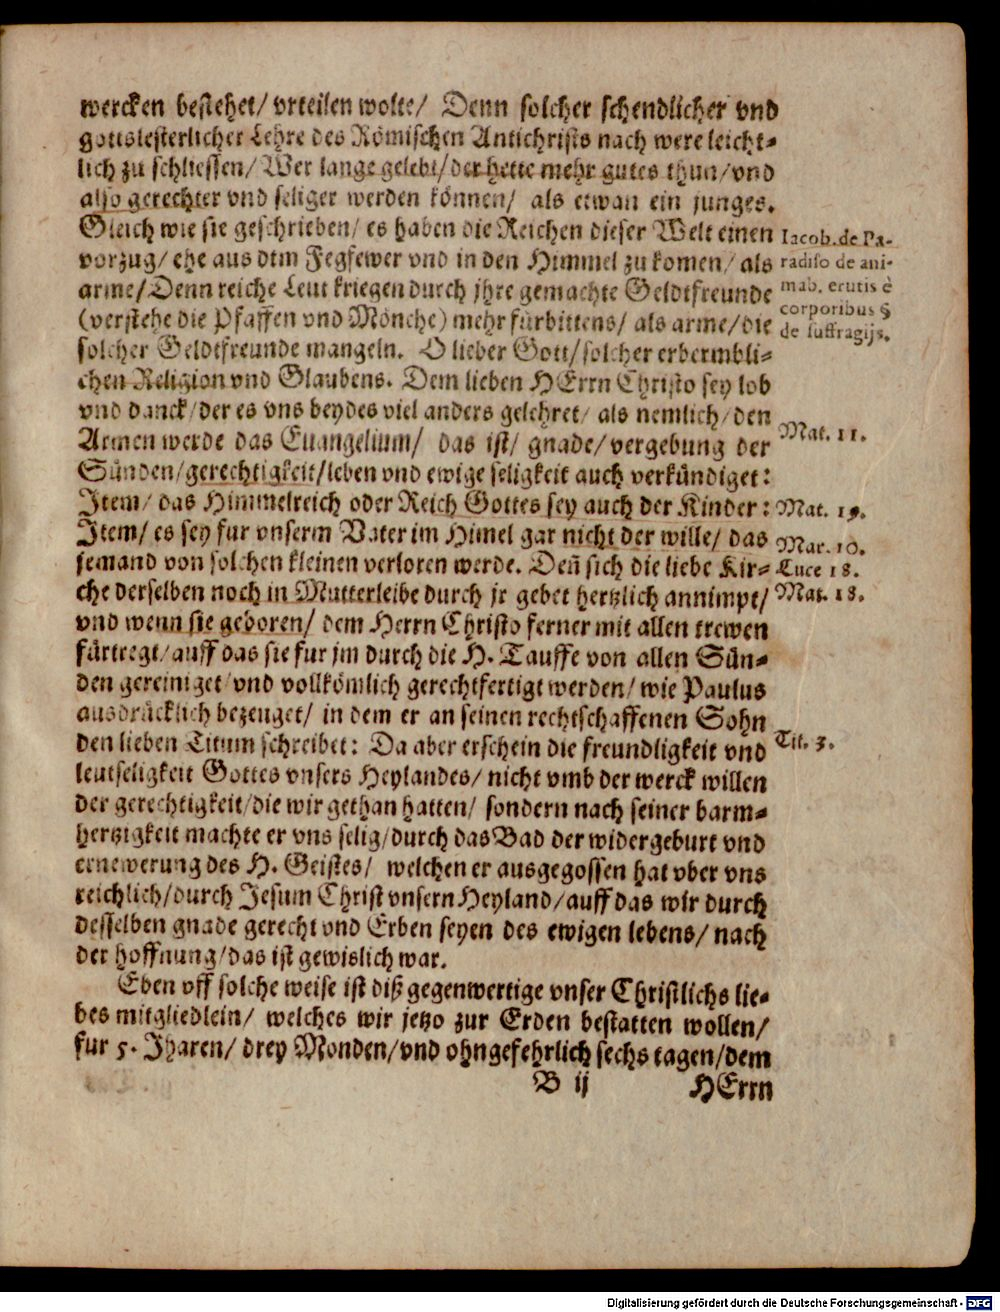 wercken bestehet/ vrteilen wolte/ Denn solcher schendlicher vnd
gottslesterlicher Lehre des Römischen Antichrists nach were leicht-
lich zu schliessen/ Wer lange gelebt/ der hette mehr gutes thun/ vnd
also gerechter vnd seliger werden können/ als etwan ein junges.
Gleich wie sie geschrieben/ es haben die Reichen dieser Welt einen
Iacob. de Pa-
vorzug/ ehe aus dem Fegfewer vnd in den Himmel zu komen/ als
radiso de ani-
arme/ Denn reiche Leut kriegen durch jhre gemachte Geldtfreunde
mab. erutis è
(verstehe die Pfaffen vnd Mönche) mehr fürbittens/ als arme/ die
corporibus §
de suffragijs.
solcher Geldtfreunde mangeln. O lieber Gott/ solcher erbermbli-
chen Religion vnd Glaubens. Dem lieben HErrn Christo sey lob
vnd danck/ der es vns beydes viel anders gelehret/ als nemlich/ den
Armen werde das Euangelium/ das ist/ gnade/ vergebung der
Mat. 11.
Sünden/ gerechtigkeit/ leben vnd ewige seligkeit auch verkündiget:
Item/ das Himmelreich oder Reich Gottes sey auch der Kinder:
Mat. 19.
Item/ es sey fur vnserm Vater im Himel gar nicht der wille/ das
Mar. 10.
jemand von solchen kleinen verloren werde. Deñ sich die liebe Kir-
Luce 18.
che derselben noch in Mutterleibe durch jr gebet hertzlich annimpt/
Mat. 18.
vnd wenn sie geboren/ dem Herrn Christo ferner mit allen trewen
fürtregt/ auff das sie fur jm durch die H. Tauffe von allen Sün-
den gereiniget vnd vollkömlich gerechtfertigt werden/ wie Paulus
ausdrücklich bezeuget/ in dem er an seinen rechtschaffenen Sohn
den lieben Titum schreibet: Da aber erschein die freundligkeit vnd
Tit. 3.
leutseligkeit Gottes vnsers Heylandes/ nicht vmb der werck willen
der gerechtigkeit/ die wir gethan hatten/ sondern nach seiner barm-
hertzigkeit machte er vns selig/ durch das Bad der widergeburt vnd
ernewerung des H. Geistes/ welchen er ausgegossen hat vber vns
reichlich/ durch Jesum Christ vnsern Heyland/ auff das wir durch
desselben gnade gerecht vnd Erben seyen des ewigen lebens/ nach
der hoffnung/ das ist gewislich war.
Eben vff solche weise ist diß gegenwertige vnser Christlichs lie-
bes mitgliedlein/ welches wir jetzo zur Erden bestatten wollen/
fur 5. Jharen/ drey Monden/ vnd ohngefehrlich sechs tagen/ dem
B ij HErrn
Digitalisierung gefördert durch die Deutsche Forschungsgemeinschaft - DFG